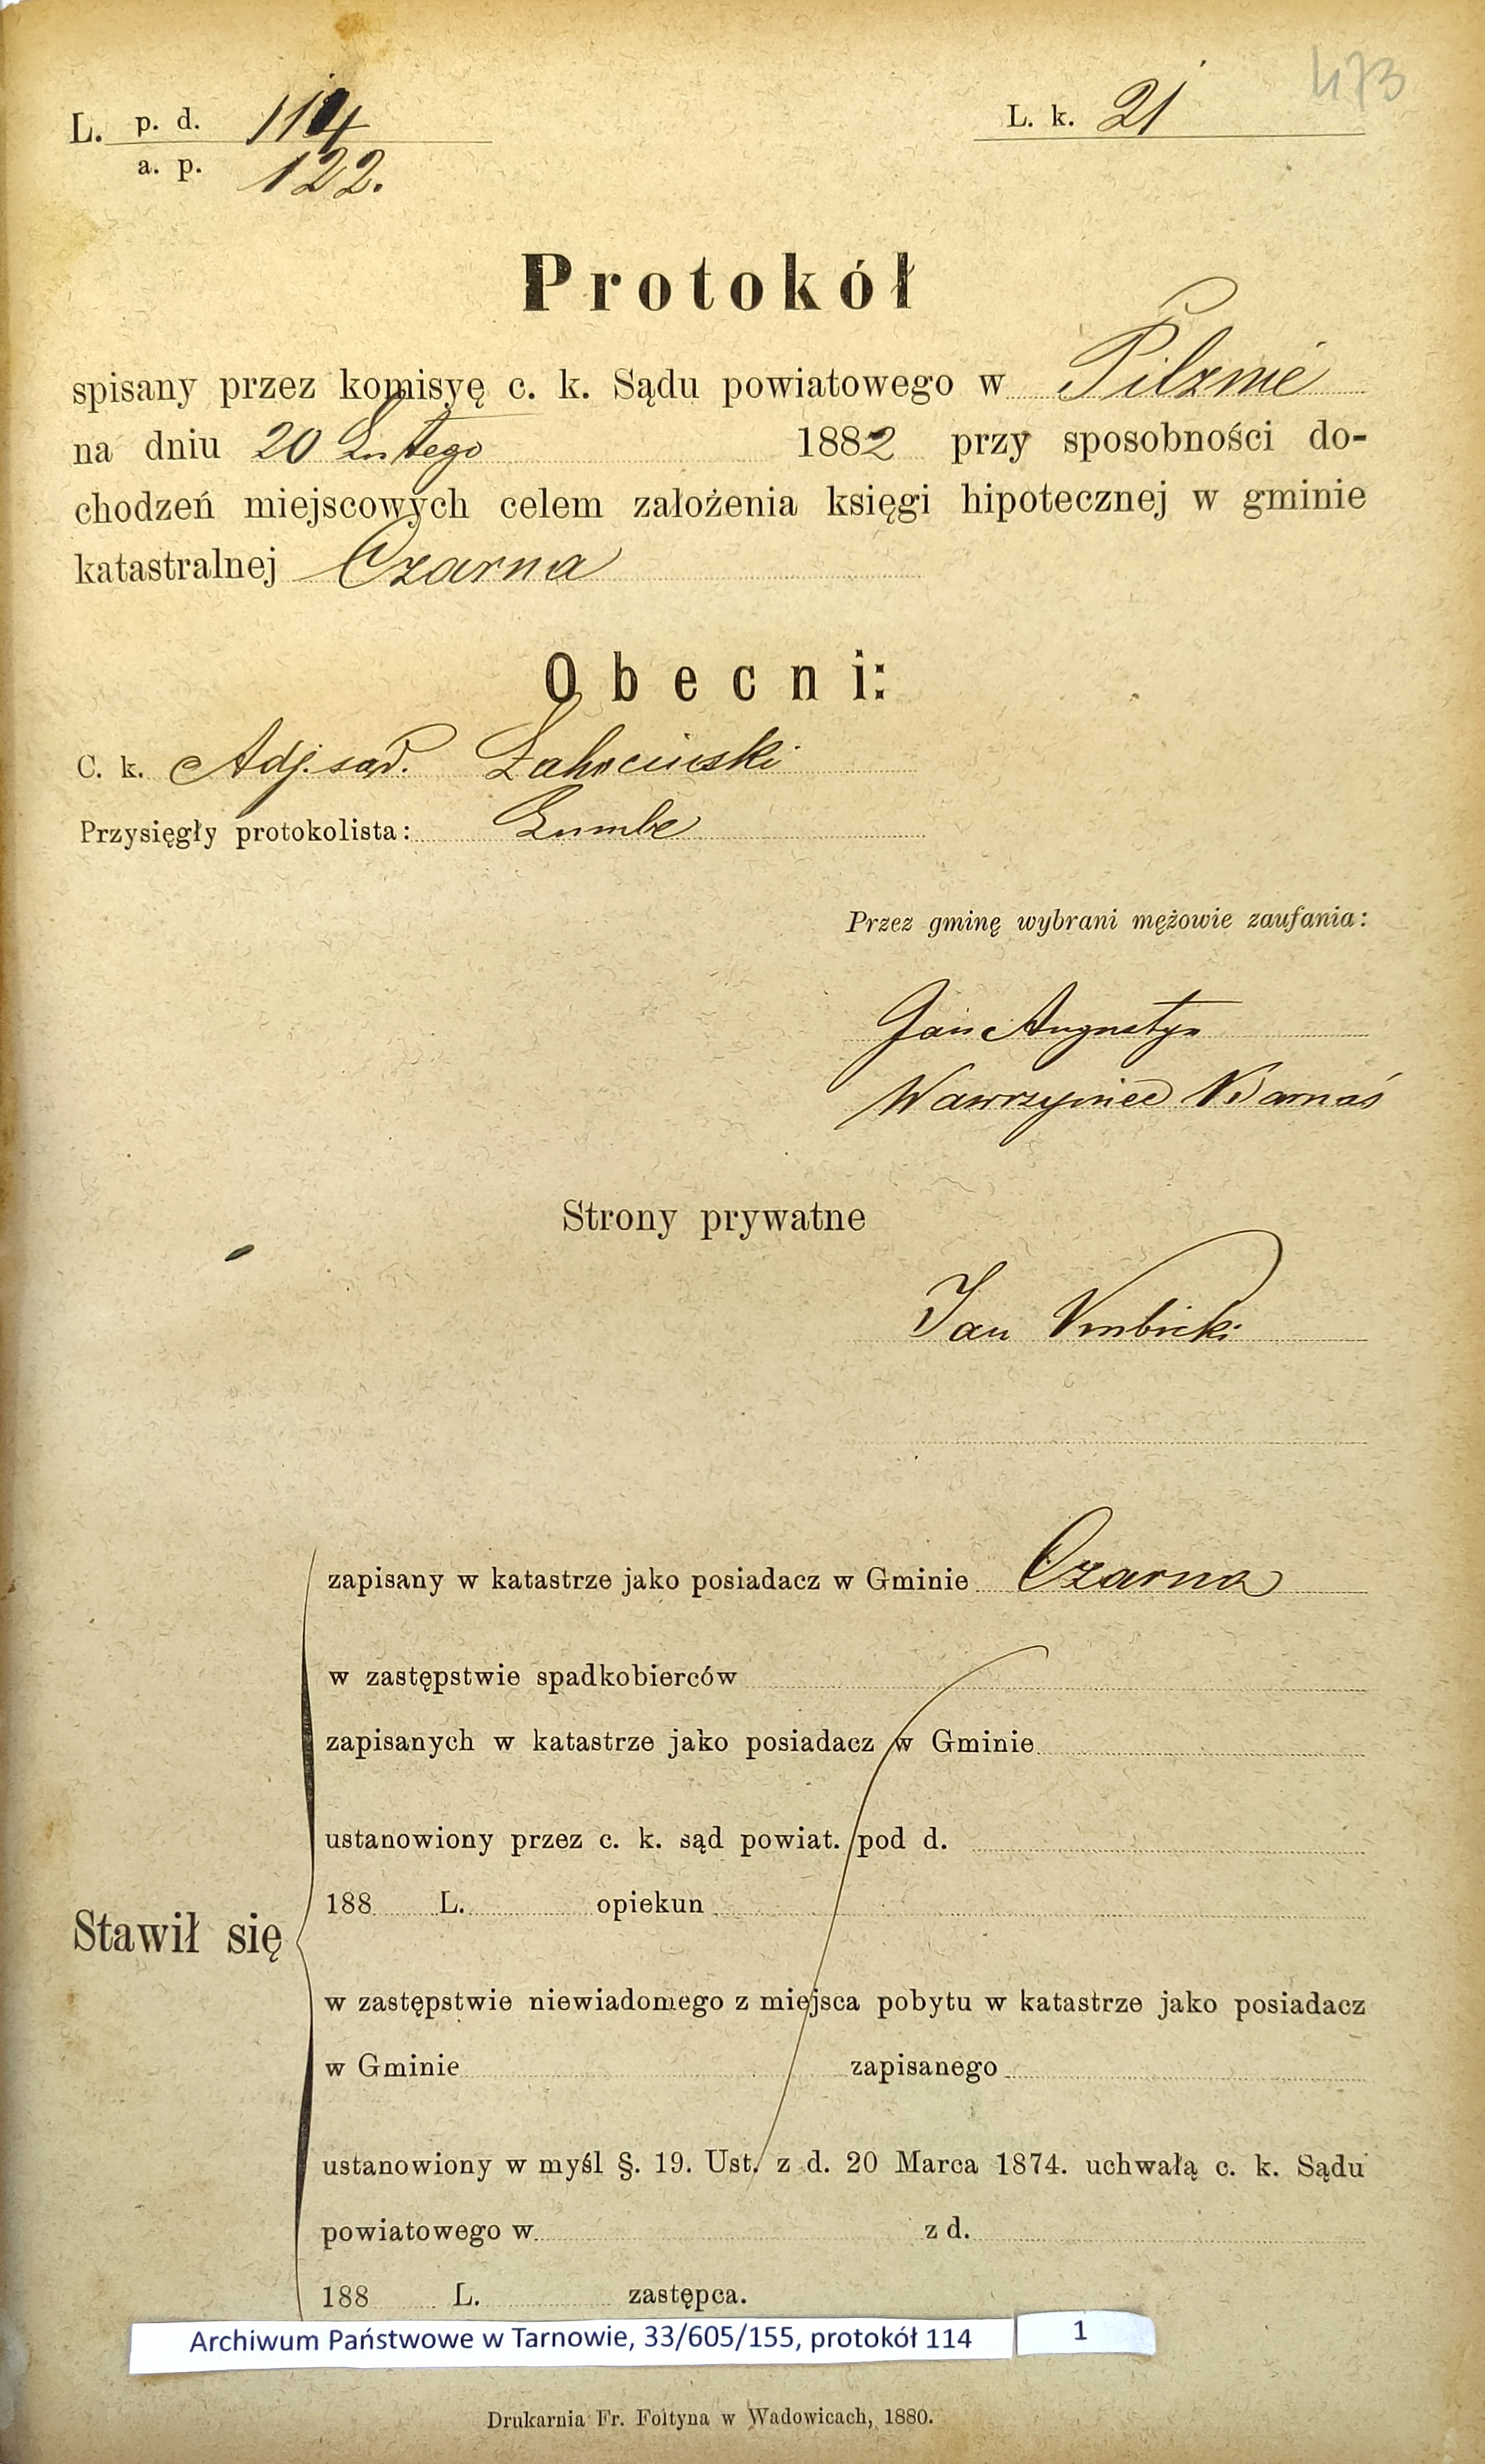 473
L. p. d. 114 L. k. 21
a. p. 122.
Protokół
spisany przez komisyę c. k. Sądu powiatowego w Pilznie
na dniu 20 Lutego 1882 przy sposobności do-
chodzeń miejscowych celem założenia księgi hipotecznej w gminie
katastralnej Czarna
Obecni:
C. k. Adj. sąd. Żahociński
Przysięgły protokolista:
Przez gminę wybrani mężowie zaufania:
Jan Augustyn
Wawrzyniec Barnaś
Strony prywatne
Jan Vmbicki
zapisany w katastrze jako posiadacz w Gminie Czarna
w zastępstwie spadkobierców
zapisanych w katastrze jako posiadacz w Gminie
ustanowiony przez c. k. sąd powiat. pod d.
188 L. opiekun
Stawił się
w zastępstwie niewiadomego z miejsca pobytu w katastrze jako posiadacz
w Gminie zapisanego
ustanowiony w myśl §. 19. Ust. z d. 20 Marca 1874. uchwałą c. k. Sądu
powiatowego w z d.
188 L. zastępca.
Archiwum Państwowe w Tarnowie, 33/605/155, protokół 114 1
Drukarnia Fr. Foltyna w Wadowicach, 1880.